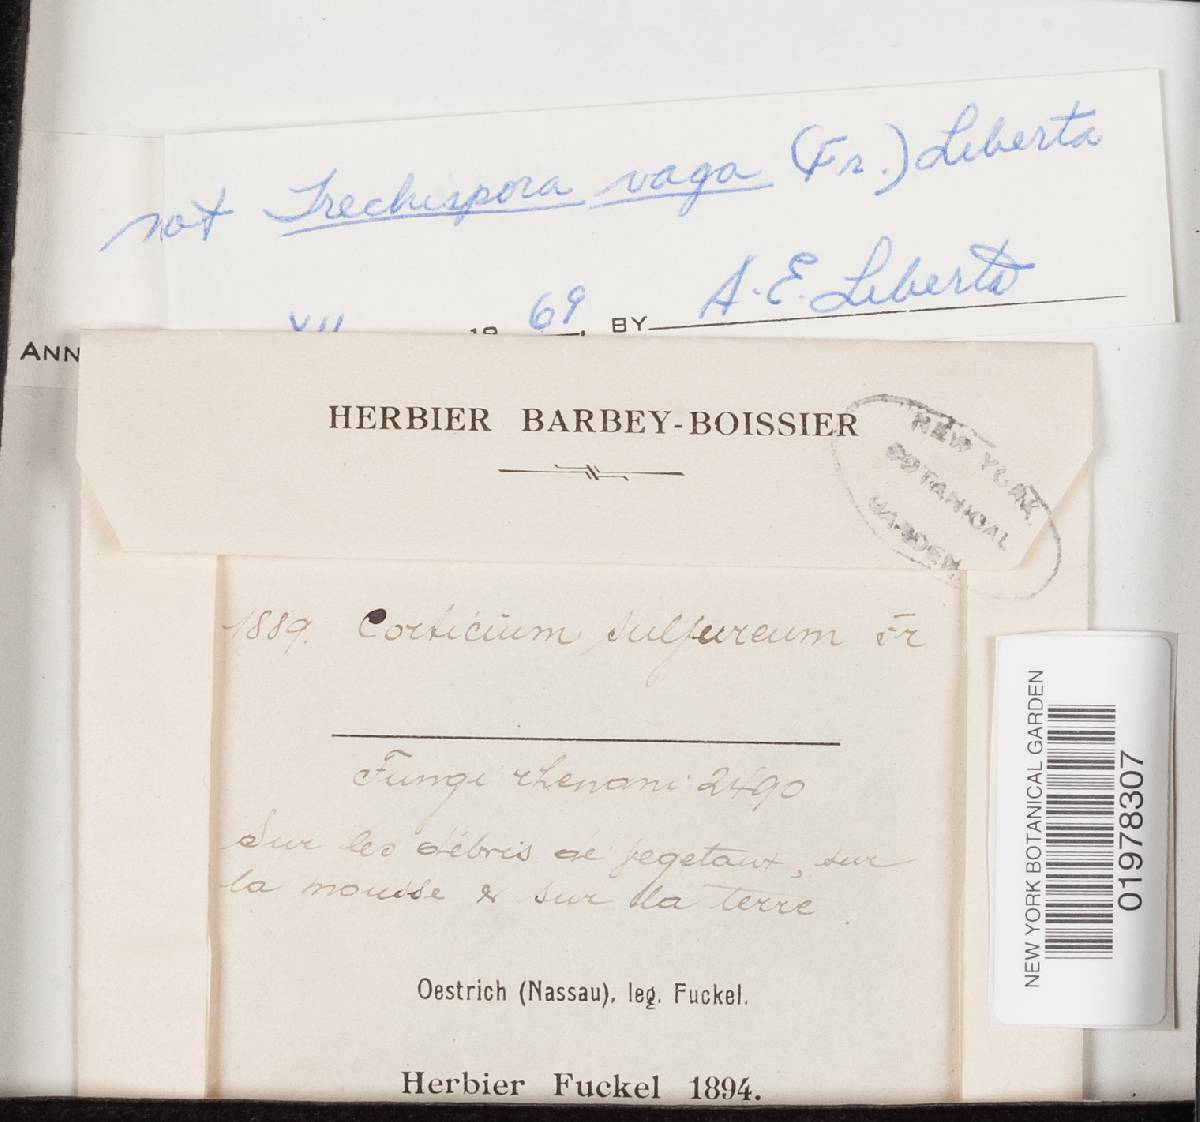 not Trechispora vaga (Fr.) Liberta
XII 19 69, BY A. E. Liberta
ANN
HERBIER BARBEY-BOISSIER
NEW YORK
BOTANICAL
GARDEN
1889. Corticium sulfureum Fr
Fungi rhenani 2490
Sur les débris de vegetaux, sur
la mousse & sur la terre
Oestrich (Nassau), leg. Fuckel.
Herbier Fuckel 1894.
NEW YORK BOTANICAL GARDEN
01978307